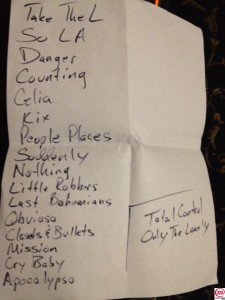 Take The L
So LA
Danger
Counting
Celia
Kix
People Places
Suddenly
Nothing
Little Robbers
Last Bohemians
Obvioso
Closets & Bullets
Mission
Cry Baby
Apocalypso
Total Control
Only The Lonely